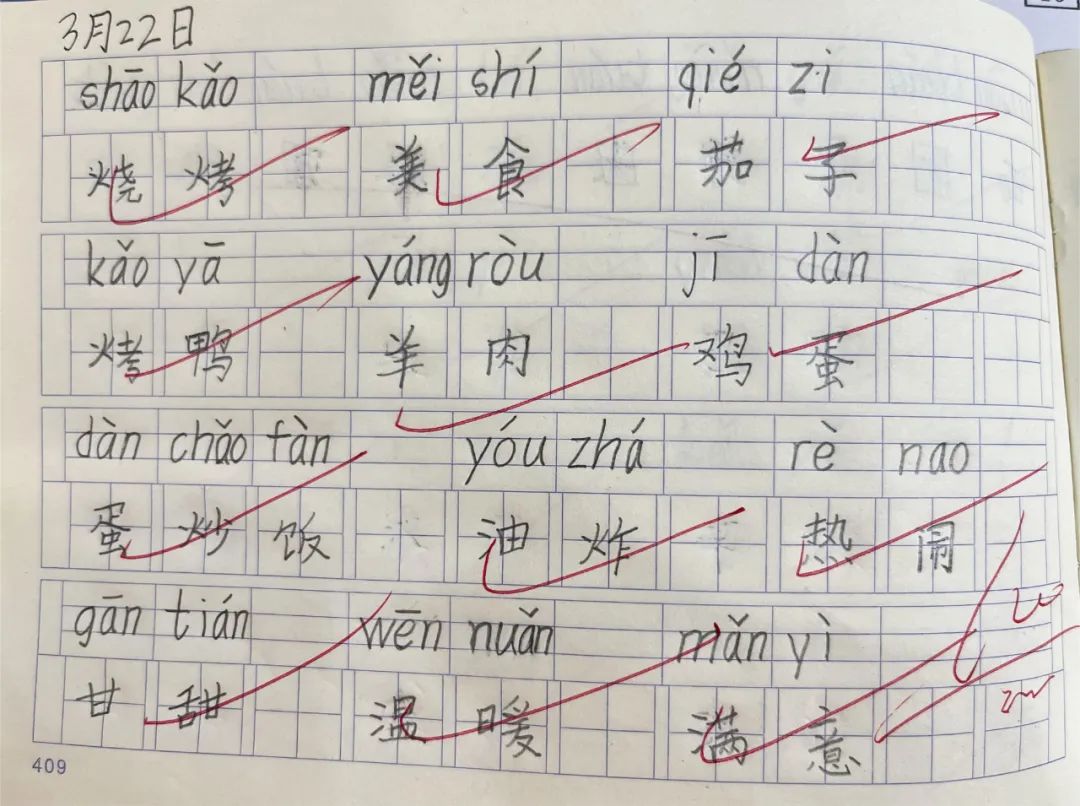 3月22日
shāo kǎo měi shí qié zi
烧烤 美食 茄子
kǎo yā yáng ròu jī dàn
烤鸭 羊肉 鸡蛋
dàn chǎo fàn yóu zhá rè nao
蛋炒饭 油炸 热闹
gān tián wēn nuǎn mǎn yì
甘甜 温暖 满意
409